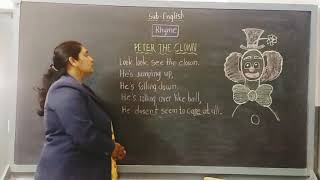 Sub-English
Rhyme
PETER THE CLOWN
Look look see the clown.
He's jumping up,
He's falling down.
He's rolling over like ball,
He doesn't seem to care at all.